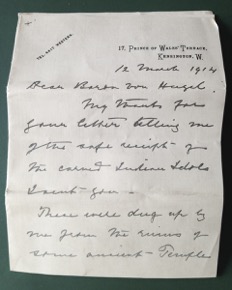 TEL. 2417 WESTERN.
17, PRINCE OF WALES' TERRACE,
KENSINGTON, W.
12 March 1914
Dear Baron von Hügel.
My thanks for
your letter telling me
of the safe receipt of
the carved Indian Idols
I sent you —
These were dug up by
me from the ruins of
some ancient Temples